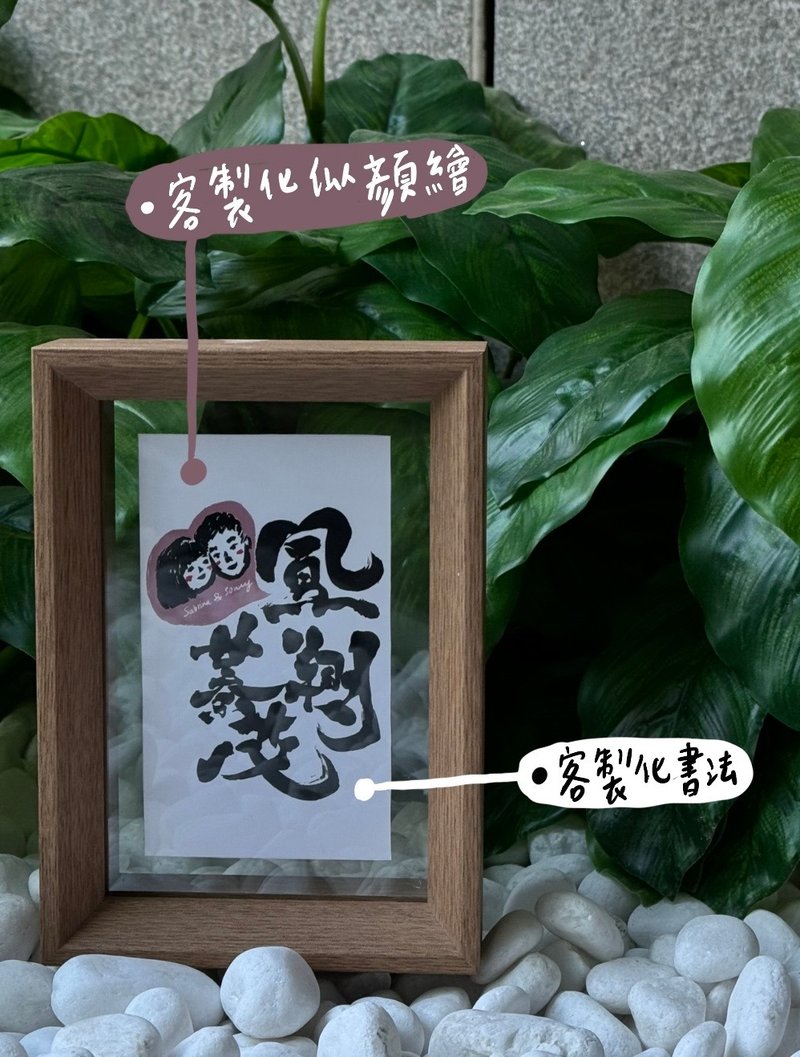 客製化似顏繪
Sabrina & Sonny
鳳翔
茂
客製化書法